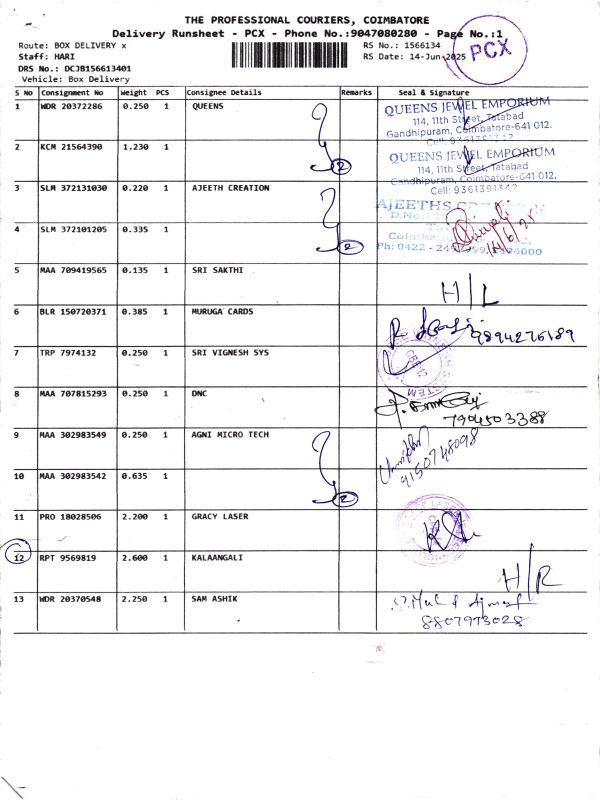 THE PROFESSIONAL COURIERS, COIMBATORE
Delivery Runsheet - PCX - Phone No.:9047080280 - Page No.:1
Route: BOX DELIVERY x
RS No.: 1566134
Staff: HARI
RS Date: 14-Jun-2025
DRS No.: DCJB156613401
Vehicle: Box Delivery
PCX
S No Consignment No Weight PCS Consignee Details Remarks Seal & Signature
1 WDR 20372286 0.250 1 QUEENS
QUEENS JEWEL EMPORIUM
114, 11th Street, Tatabad
Gandhipuram, Coimbatore-641 012.
Cell: 9361391342
2 KCM 21564390 1.230 1
2
QUEENS JEWEL EMPORIUM
114, 11th Street, Tatabad
Gandhipuram, Coimbatore-641 012.
Cell: 9361391342
3 SLM 372131030 0.220 1 AJEETH CREATION
AJEETHS
D.No.
4 SLM 372101205 0.335 1
2
14/6/25
Ph: 0422 -
5 MAA 709419565 0.135 1 SRI SAKTHI
H/L
6 BLR 150720371 0.385 1 MURUGA CARDS
9894276189
7 TRP 7974132 0.250 1 SRI VIGNESH SYS
8 MAA 707815293 0.250 1 DNC
7904503388
9 MAA 302983549 0.250 1 AGNI MICRO TECH
9150748098
10 MAA 302983542 0.635 1
2
11 PRO 18028506 2.200 1 GRACY LASER
12 RPT 9569819 2.600 1 KALAANGALI
H/R
13 WDR 20370548 2.250 1 SAM ASHIK
8807973028